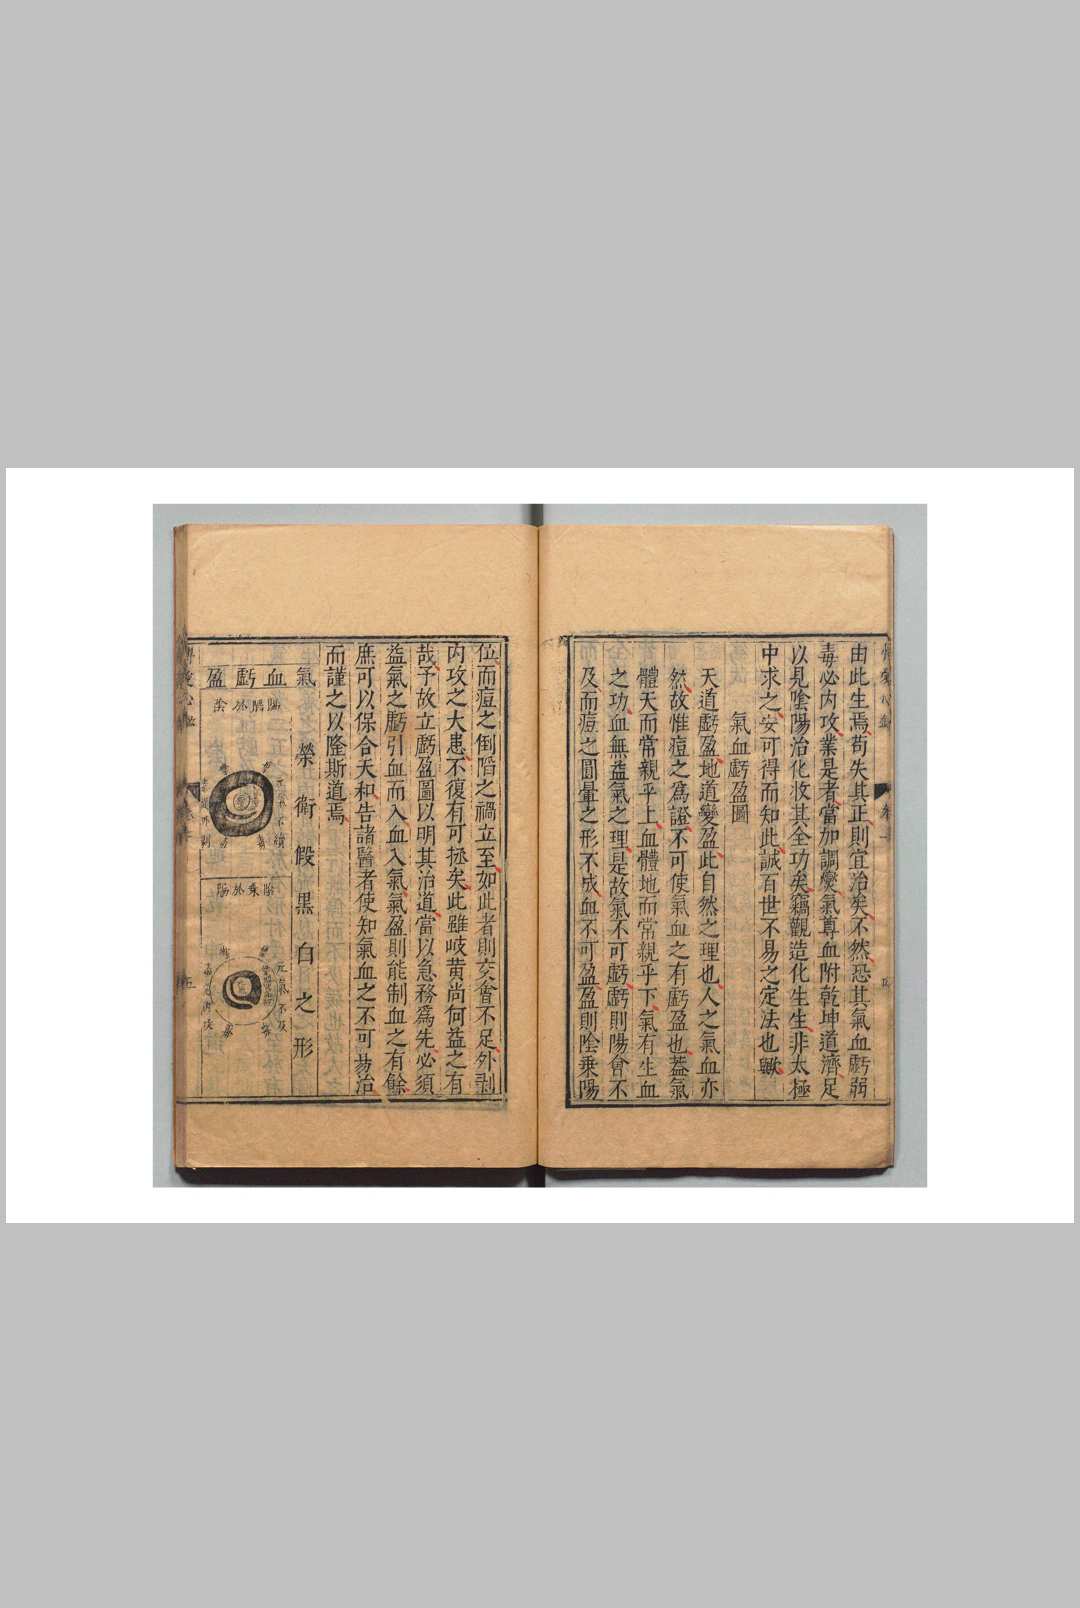 由此生焉苟失其正則宜治矣不然恐其氣血虧弱
毒必內攻業是者當加調燮氣尊血附乾坤道濟足
以見陰陽治化收其全功矣竊觀造化生生非太極
中求之安可得而知此誠百世不易之定法也歟
氣血虧盈圖
天道虧盈地道變盈此自然之理也人之氣血亦
然故惟痘之為證不可使氣血之有虧盈也蓋氣
體天而常親乎上血體地而常親乎下氣有生血
之功血無益氣之理是故氣不可虧虧則陽會不
及而痘之圓暈之形不成血不可盈盈則陰乗陽
位而痘之倒陷之禍立至如此者則交會不足外剥
内攻之大患不復有可拯矣此雖岐黄尚何益之有
哉予故立虧盈圖以明其治道當以急務為先必須
益氣之虧引血而入血入氣氣盈則能制血之有餘
庶可以保合天和告諸醫者使知氣血之不可易治
而謹之以隆斯道焉
氣血虧盈
榮衛假黑白之形
陽陷於陰
陰乗於陽
元氣不及
五